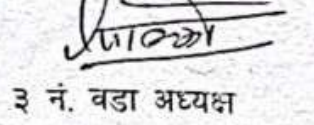 ३ नं. वडा अध्यक्ष